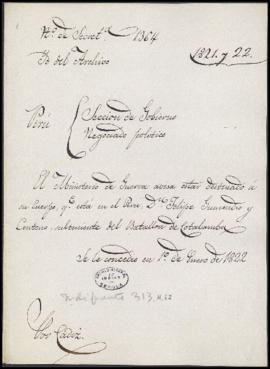 Nº de Secretª 1364
Id del Archivo
1821 y 22.
Perú
Seccion de Gobierno
Negociado politico
El Ministerio de Guerra avisa estar destinado á
su Cuerpo, qe está en el Perú, Dn Felipe
Centeno, subteniente del Batallon de Cotabamba
Se le concedio en 1º de Enero de 1822
Indiferente 313, N.52
Por Cadiz.